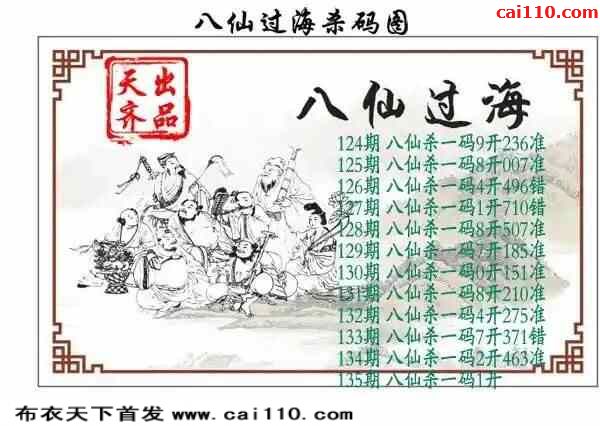 cai110.com
八仙过海杀码图
天齐出品
八仙过海
124期 八仙杀一码9开236准
125期 八仙杀一码8开007准
126期 八仙杀一码4开496错
127期 八仙杀一码1开710错
128期 八仙杀一码8开507准
129期 八仙杀一码7开185准
130期 八仙杀一码0开151准
131期 八仙杀一码8开210准
132期 八仙杀一码4开275准
133期 八仙杀一码7开371错
134期 八仙杀一码2开463准
135期 八仙杀一码1开
布衣天下首发 www.cai110.com